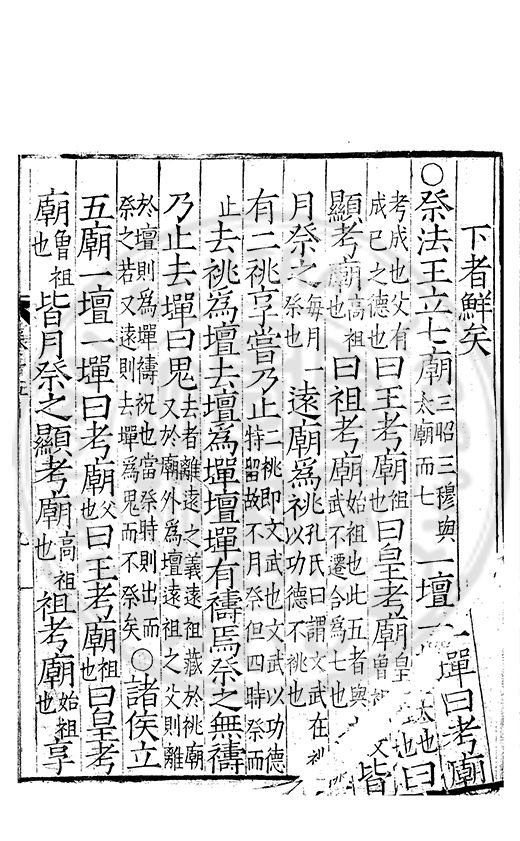 下者鮮矣
○祭法王立七廟三昭三穆與太廟而七一壇一墠曰考廟
考成也父有成已之德也曰王考廟祖也曰皇考廟皇曾祖太也也曰
顯考廟高祖廟也曰祖考廟始祖也此五者與文武不遷合為七也皆
月祭之每月祭也一遠廟為祧孔氏曰謂文武在祧以功德不祧也
有二祧享嘗乃止二祧即文武也文武以功德特留故不月祭但四時祭而
止去祧為壇去壇為墠壇墠有禱焉祭之無禱
乃止去墠曰鬼去者離遠之義遠祖藏於祧廟又於廟外為壇遠祖之父則離
於壇則為墠禱祝也當祭時則出而祭之若又遠則去墠為鬼而不祭矣○諸侯立
五廟一壇一墠曰考廟父也曰王考廟祖也曰皇考
廟曾祖也皆月祭之顯考廟高祖也祖考廟始祖也享